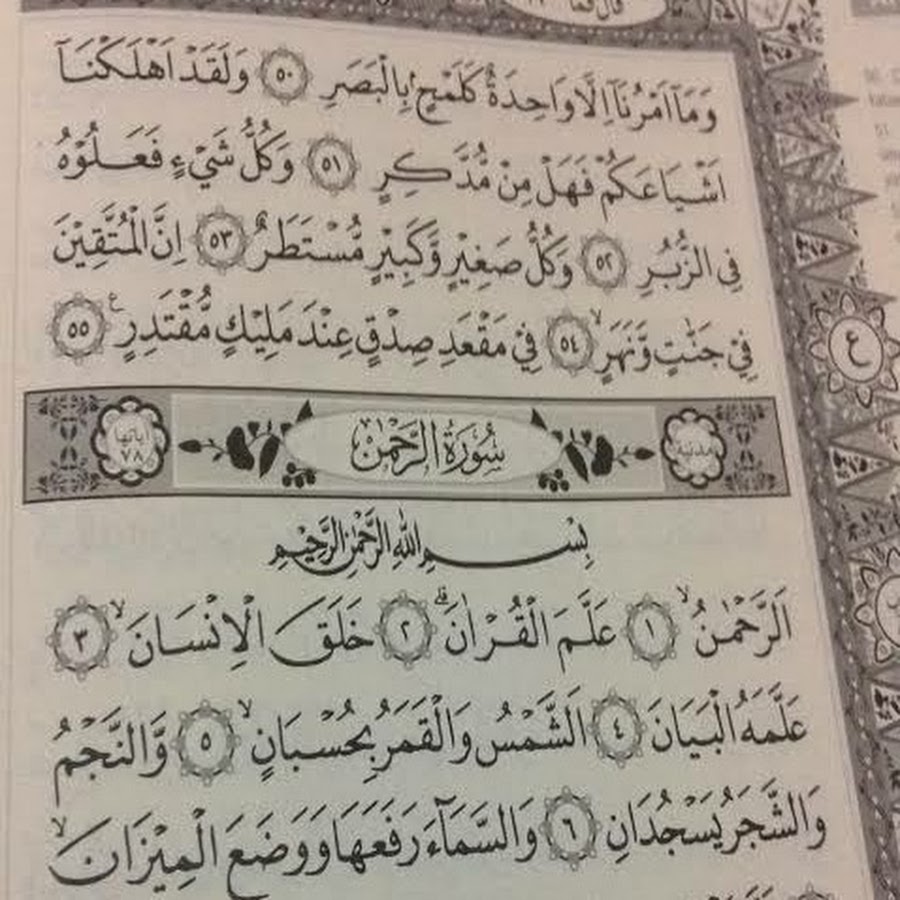 قال فما
وَمَآ اَمْرُنَآ اِلَّا وَاحِدَةٌ كَلَمْحٍۢ بِالْبَصَرِ ٥٠ وَلَقَدْ اَهْلَكْنَآ
اَشْيَاعَكُمْ فَهَلْ مِنْ مُّدَّكِرٍ ٥١ وَكُلُّ شَيْءٍ فَعَلُوْهُ
فِى الزُّبُرِ ٥٢ وَكُلُّ صَغِيْرٍ وَّكَبِيْرٍ مُّسْتَطَرٌ ٥٣ اِنَّ الْمُتَّقِيْنَ
فِيْ جَنّٰتٍ وَّنَهَرٍۙ ٥٤ فِيْ مَقْعَدِ صِدْقٍ عِنْدَ مَلِيْكٍ مُّقْتَدِرٍ ࣖ ٥٥
ع
مدنية سُوْرَةُ الرَّحْمٰن اٰياتها ٧٨
بِسْــمِ اللّٰهِ الرَّحْمٰنِ الرَّحِيْمِ
اَلرَّحْمٰنُۙ ١ عَلَّمَ الْقُرْاٰنَۗ ٢ خَلَقَ الْاِنْسَانَۙ ٣
عَلَّمَهُ الْبَيَانَ ٤ اَلشَّمْسُ وَالْقَمَرُ بِحُسْبَانٍۙ ٥ وَّالنَّجْمُ
وَالشَّجَرُ يَسْجُدَانِ ٦ وَالسَّمَاۤءَ رَفَعَهَا وَوَضَعَ الْمِيْزَانَۙ